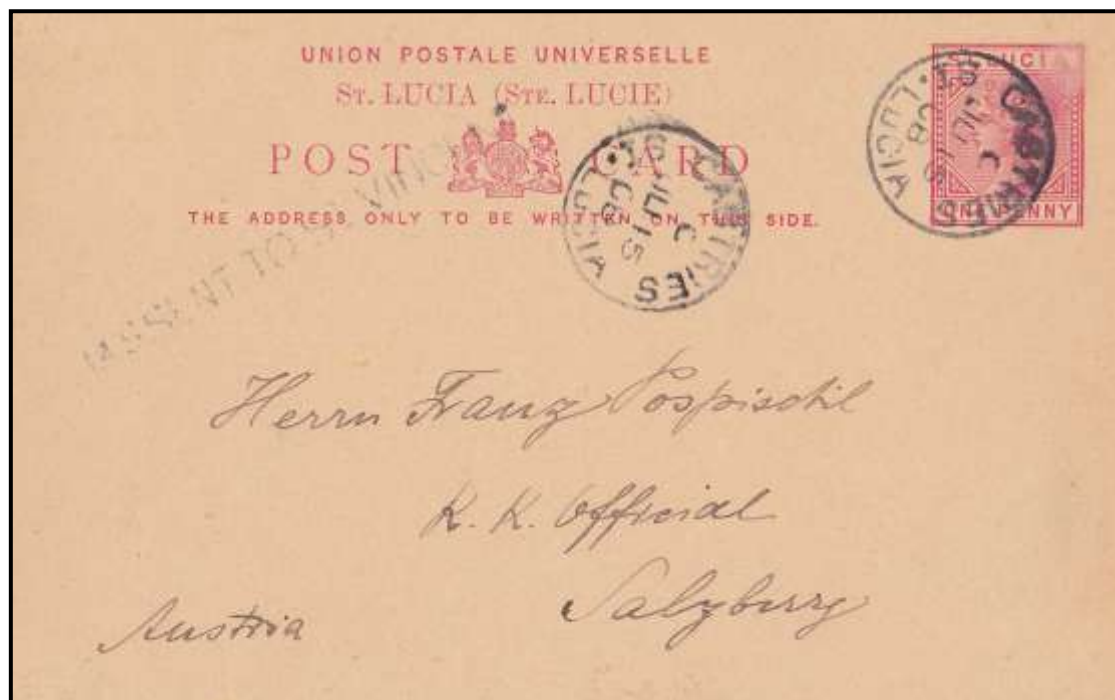 UNION POSTALE UNIVERSELLE
ST. LUCIA (STE. LUCIE)
POST CARD
THE ADDRESS ONLY TO BE WRITTEN ON THIS SIDE.
ST LUCIA
ONE PENNY
CASTRIES
C
JU 15
ST. LUCIA
CASTRIES
C
JU 15
ST. LUCIA
MISSENT TO
Herrn Franz Pospischil
K. K. Official
Salzburg
Austria